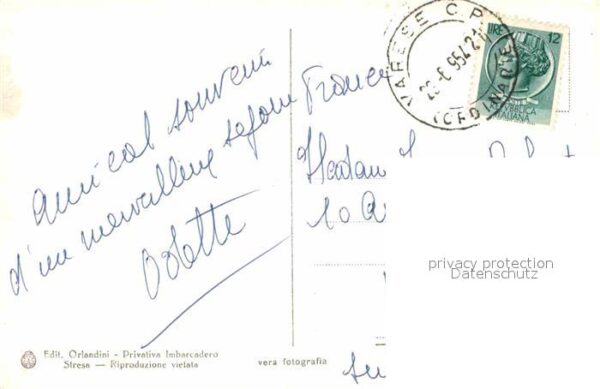 amical souvenir
d'un merveilleux séjour
Odette
France
10 A
VARESE C.P.
(ORDINARIE
LIRE 12
POSTE
REPUBBLICA
ITALIANA
privacy protection
Datenschutz
Edit. Orlandini - Privativa Imbarcadero
Stresa — Riproduzione vietata
vera fotografia